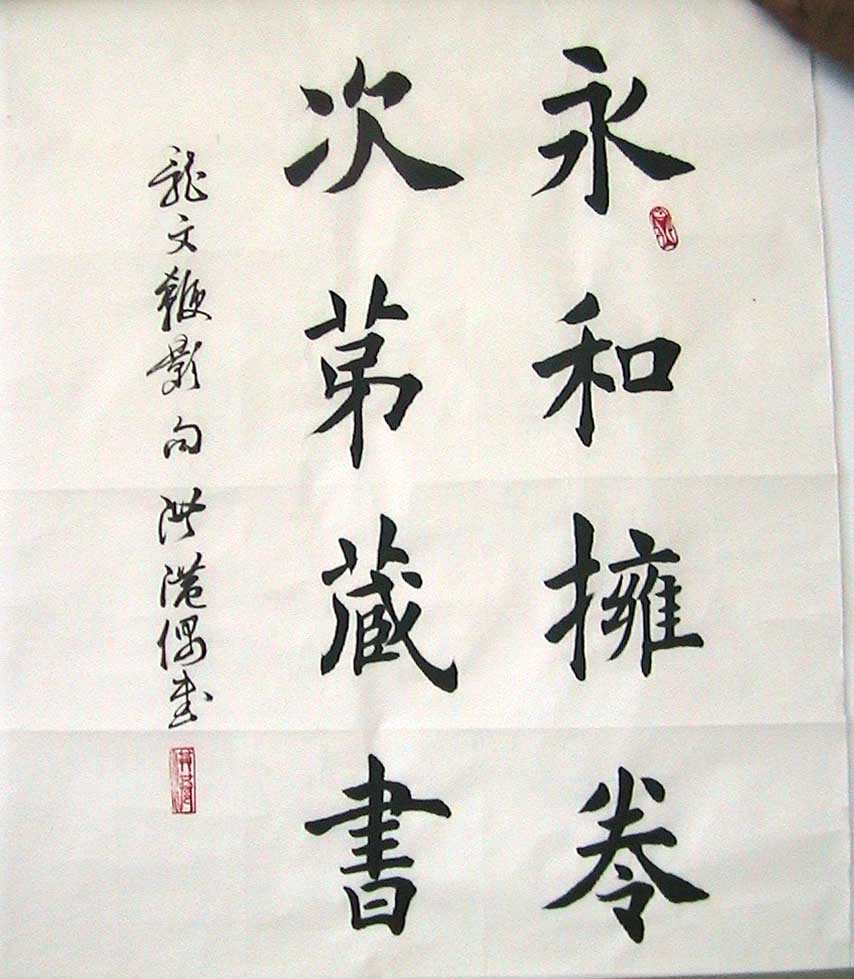 永和擁卷
次苐蔵書
龍文鞭影句洪港偶書